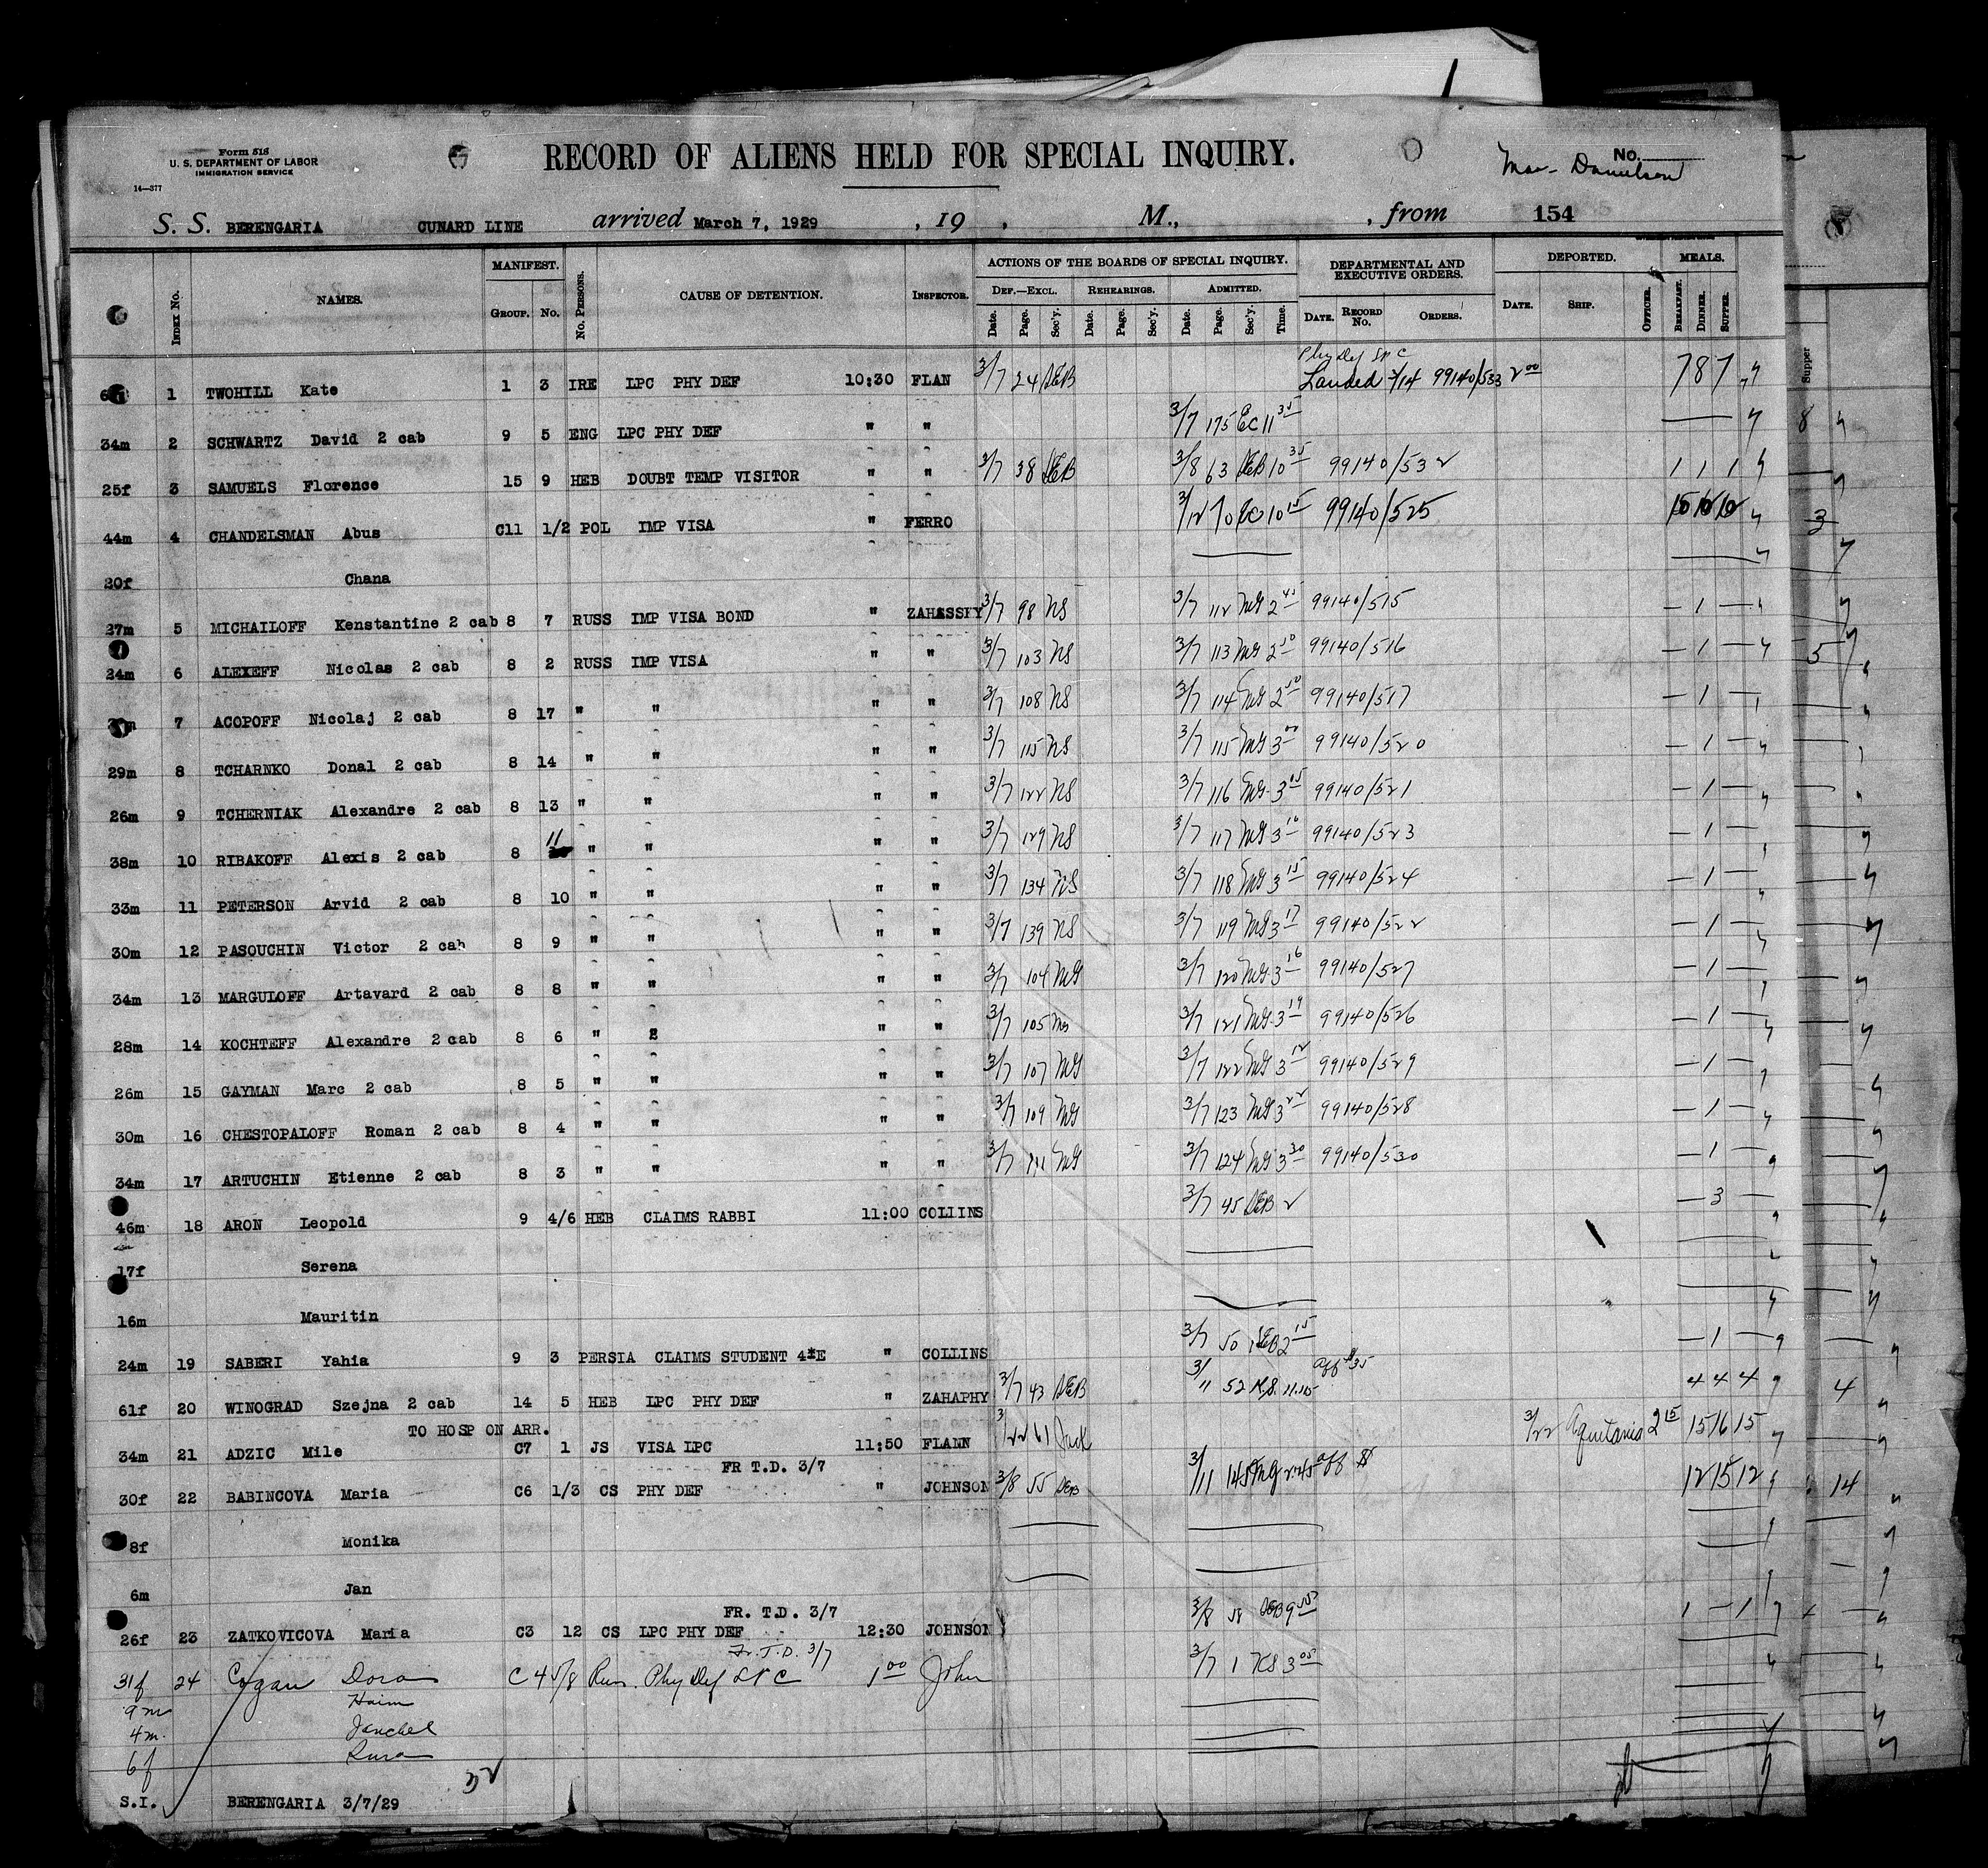 Form 515
U. S. DEPARTMENT OF LABOR
IMMIGRATION SERVICE
14—377
RECORD OF ALIENS HELD FOR SPECIAL INQUIRY.
No.
S. S. BERENGARIA CUNARD LINE arrived March 7, 1929 , 19 , M., , from 154
Index No. NAMES. MANIFEST. Group. No. No. Persons. CAUSE OF DETENTION. Inspector. ACTIONS OF THE BOARDS OF SPECIAL INQUIRY. Def.—Excl. Date. Page. Sec'y. Rehearings. Date. Page. Sec'y. Admitted. Date. Page. Sec'y. Time. DEPARTMENTAL AND EXECUTIVE ORDERS. Date. Record No. Orders. DEPORTED. Date. Ship. Officer. MEALS. Breakfast. Dinner. Supper. Supper
1 TWOHILL Kate 1 3 IRE LPC PHY DEF 10:30 FLAN 3/7 24 DEB Landed 3/14 99140/533 2 00 7 8 7
34m 2 SCHWARTZ David 2 cab 9 5 ENG LPC PHY DEF " " 3/7 175 EC 11 35 8
25f 3 SAMUELS Florence 15 9 HEB DOUBT TEMP VISITOR " " 3/7 38 DEB 3/8 63 DEB 10 35 99140/532 1 1 1
44m 4 CHANDELSMAN Abus C11 1/2 POL IMP VISA " FERRO 3/12 70 EC 10 15 99140/525 3
20f Chana
27m 5 MICHAILOFF Kenstantine 2 cab 8 7 RUSS IMP VISA BOND " ZAHASSFY 3/7 98 NS 3/7 112 MG 2 45 99140/515 — 1 —
24m 6 ALEXEFF Nicolas 2 cab 8 2 RUSS IMP VISA " " 3/7 103 NS 3/7 113 MG 2 50 99140/516 — 1 — 5
7 ACOPOFF Nicolaj 2 cab 8 17 " " " " 3/7 108 NS 3/7 114 MG 2 50 99140/517 — 1 —
29m 8 TCHARNKO Donal 2 cab 8 14 " " " " 3/7 115 NS 3/7 115 MG 3 00 99140/520 — 1 —
26m 9 TCHERNIAK Alexandre 2 cab 8 13 " " " " 3/7 122 NS 3/7 116 MG 3 15 99140/521 — 1 —
38m 10 RIBAKOFF Alexis 2 cab 8 11 " " " " 3/7 129 NS 3/7 117 MG 3 10 99140/523 — 1 —
33m 11 PETERSON Arvid 2 cab 8 10 " " " " 3/7 134 NS 3/7 118 MG 3 15 99140/524 — 1 —
30m 12 PASOUCHIN Victor 2 cab 8 9 " " " " 3/7 139 NS 3/7 119 MG 3 17 99140/522 — 1 —
34m 13 MARGULOFF Artavard 2 cab 8 8 " " " " 3/7 104 MG 3/7 120 MG 3 16 99140/527 — 1 —
28m 14 KOCHTEFF Alexandre 2 cab 8 6 " 2 " " 3/7 105 MG 3/7 121 MG 3 19 99140/526 — 1 —
26m 15 GAYMAN Marc 2 cab 8 5 " " " " 3/7 107 MG 3/7 122 MG 3 12 99140/529 — 1 —
30m 16 CHESTOPALOFF Roman 2 cab 8 4 " " " " 3/7 109 MG 3/7 123 MG 3 22 99140/528 — 1 —
34m 17 ARTUCHIN Etienne 2 cab 8 3 " " " " 3/7 111 MG 3/7 124 MG 3 30 99140/530 — 1 —
46m 18 ARON Leopold 9 4/6 HEB CLAIMS RABBI 11:00 COLLINS 3/7 45 DEB 2 — 3 —
17f Serena
16m Mauritin
24m 19 SABERI Yahia 9 3 PERSIA CLAIMS STUDENT 4*E " COLLINS 3/7 50 DEB 2 15 — 1 —
61f 20 WINOGRAD Szejna 2 cab 14 5 HEB LPC PHY DEF " ZAHAPHY 3/7 43 DEB 3/11 52 11.15 4 4 4 4
TO HOSP ON ARR.
34m 21 ADZIC Mile C7 1 JS VISA LPC 11:50 FLANN 3/22 61 3/22 Aquitania 2 15 15 16 15
FR T.D. 3/7
30f 22 BABINCOVA Maria C6 1/3 CS PHY DEF " JOHNSON 3/8 55 DEB 3/11 145 MG 2.45 12 15 12 14
8f Monika
6m Jan
FR. T.D. 3/7
26f 23 ZATKOVICOVA Maria C3 12 CS LPC PHY DEF 12:30 JOHNSON 3/8 58 DEB 9 55 1 — 1
Fr. T.D. 3/7
31f 24 Cogan Dora C4 5/8 Rus. Phy Def LPC 1 00 John 3/7 1 KS 3 05
9m Haim
4m. Janchel
6f Sura
S.I. BERENGARIA 3/7/29